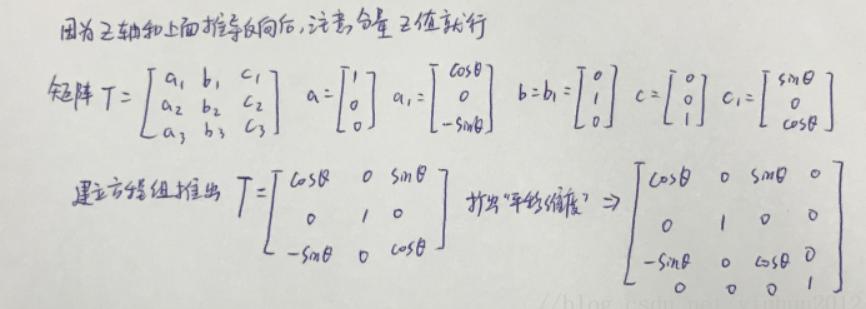 因为Z轴和上面推导反向后,注意分量Z值就行
矩阵 T = [a₁ b₁ c₁; a₂ b₂ c₂; a₃ b₃ c₃] a = [1; 0; 0] a₁ = [cosθ; 0; -sinθ] b = b₁ = [0; 1; 0] c = [0; 0; 1] c₁ = [sinθ; 0; cosθ]
建立方程组推出 T = [cosθ 0 sinθ; 0 1 0; -sinθ 0 cosθ] 扩出“平移维度” ⇒ [cosθ 0 sinθ 0; 0 1 0 0; -sinθ 0 cosθ 0; 0 0 0 1]